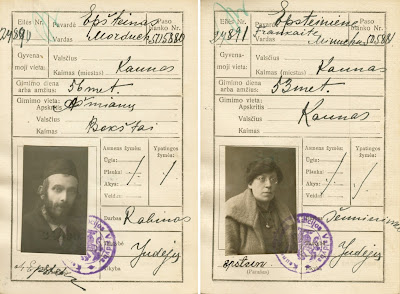 Eilės Nr. Pavardė Epšteinas Paso blanko Nr.
24890 Vardas Morduch 515880
Gyvenamoji vieta: Valsčius
Kaimas (miestas) Kaunas
Gimimo diena arba amžius: 56 met.
Gimimo vieta:
Apskritis Ašmianų
Valsčius
Kaimas Bokštai
Asmens žymės: Ypatingos žymės:
Ūgis:
Plaukai
Akys:
Veidas:
Darbas Rabinas
Tautybė Judėjas
Tikyba
Eilės Nr. Pavardė Epšteinienė Paso blanko Nr.
24891 Vardas Minucha 515881
Gyvenamoji vieta: Valsčius
Kaimas (miestas) Kaunas
Gimimo diena arba amžius: 53 met.
Gimimo vieta:
Apskritis
Valsčius Kaunas
Kaimas
Asmens žymės: Ypatingos žymės:
Ūgis:
Plaukai
Akys:
Veidas:
Darbas Šeimininkė
Tautybė Judėja
Tikyba
Epstein
(Parašas)